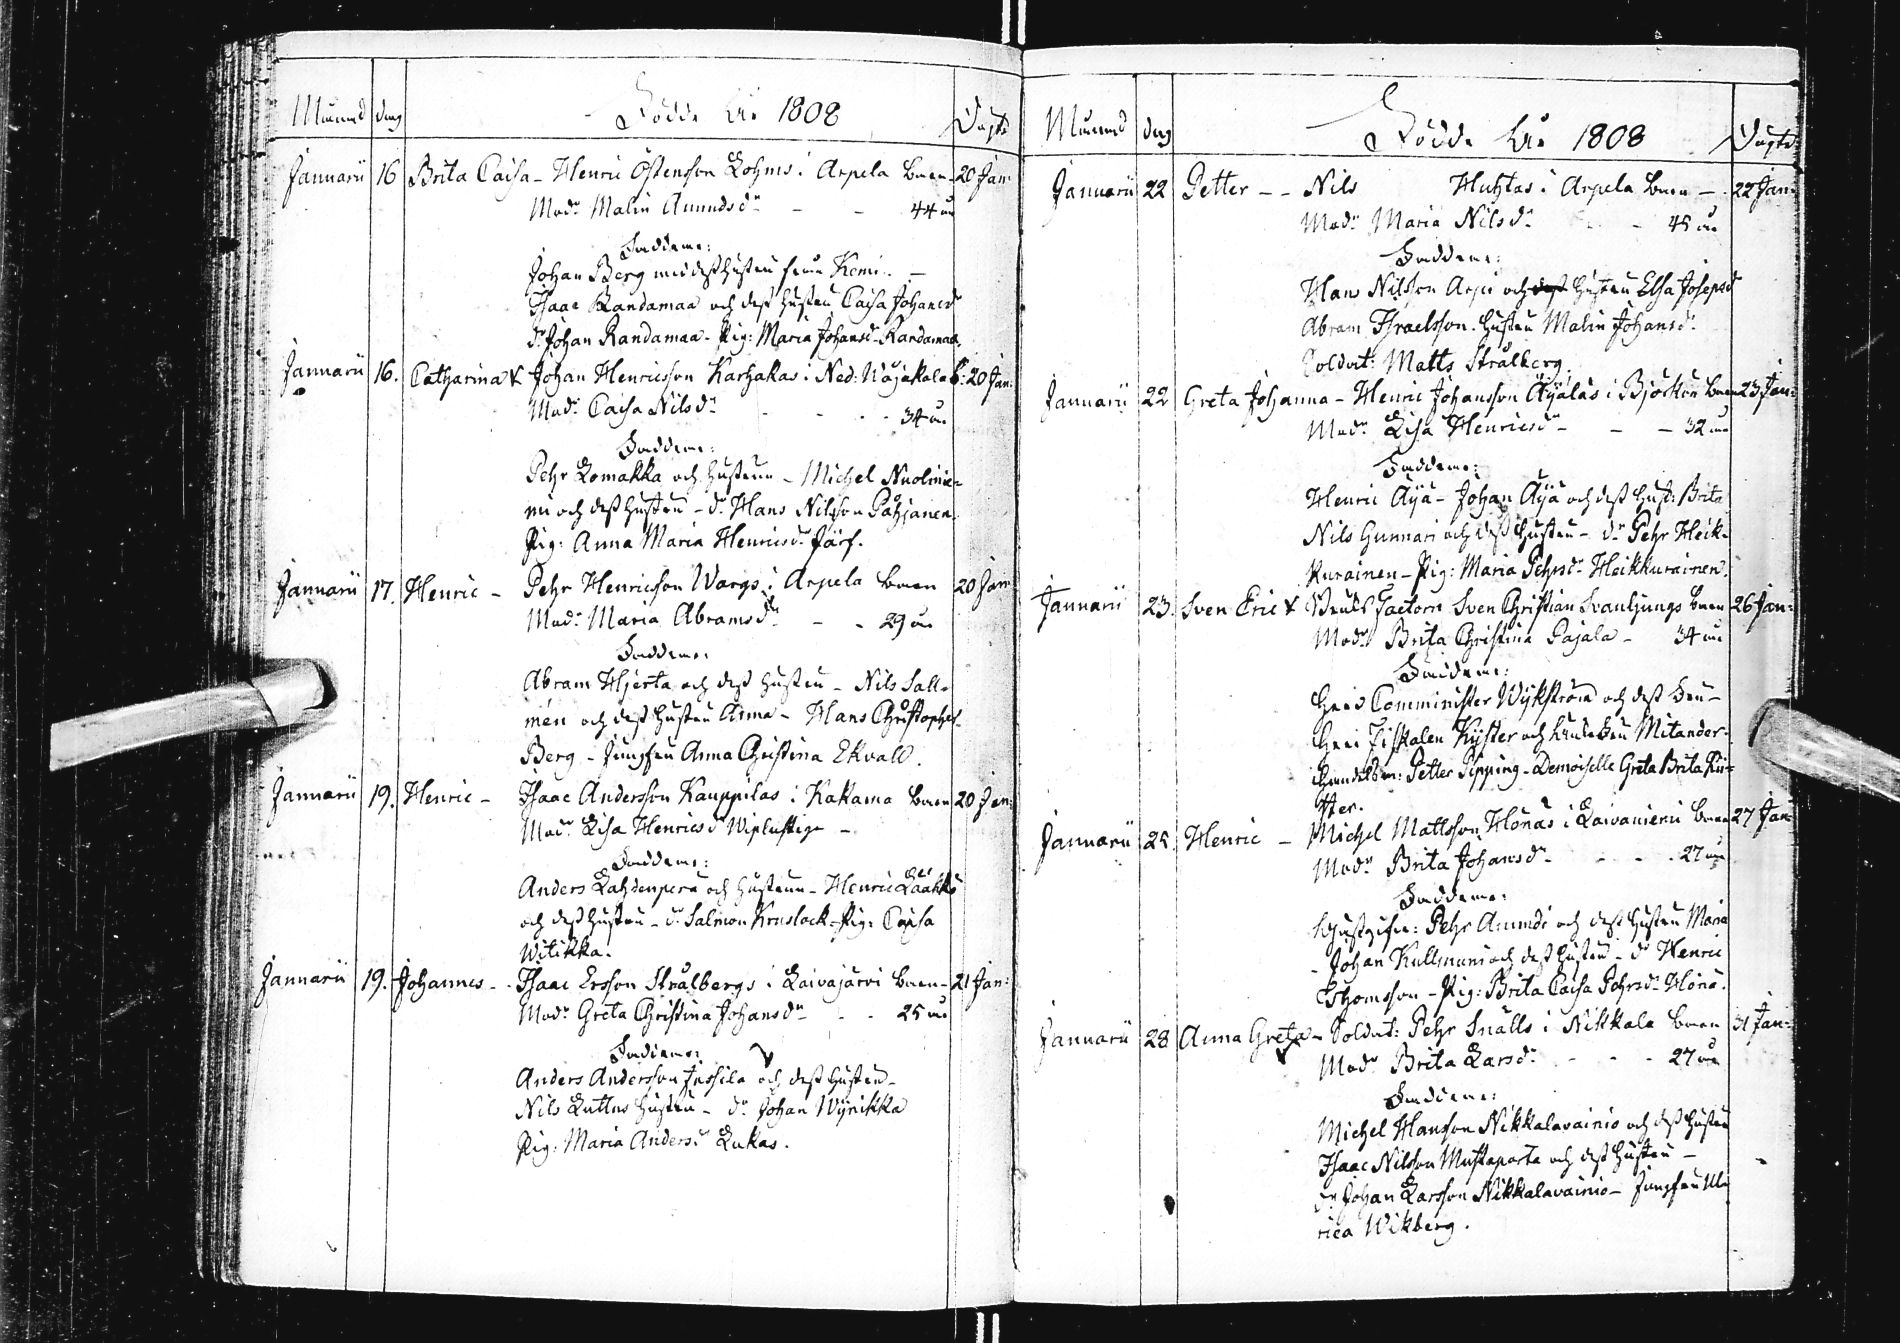 Månad dag Födde År 1808 Döpte
Januarii 16 Brita Caisa - Henric Östensson Lohms i Arpela barn - 20 Jan:
Modr Malin Amundsdr - - 44 år
Faddrar:
Johan Berg med dess hustru från Kemi. -
Isaac Randamaa och dess hustru Caisa Johansd
dr Johan Randamaa - Pig: Maria Johansd Randamaa.
Januarii 16. Catharina Johan Henricsson Karhakas i Ned: Wojakala b: 20 Jan:
Modr Caisa Nilsdr - - - 34 år
Faddrar:
Pehr Lomakka och hustrun - Michel Nuolinie-
mi och dess hustru - dr Hans Nilsson Påhjanen.
Pig: Anna Maria Henricsdr Järf.
Januarii 17. Henric - Pehr Henricsson Wargs i Arpela barn 20 Jan:
Modr Maria Abramsdr - - 29 år
Faddrar:
Abram Hjerta och dess hustru - Nils Sall-
mén och dess hustru Anna - Hans Christopher
Berg - Jungfru Anna Christina Ekvall.
Januarii 19. Henric - Isaac Andersson Kauppilas i Kakama barn 20 Jan:
Modr Lisa Henricsd -
Faddrar:
Anders Lahdenperä och hustrun - Henric Lääkkö
och dess hustru - dr Salmon - Pig: Caisa
Witikka.
Januarii 19. Johannes - Isaac Ersson Strålbergs i Laivajärvi barn - 21 Jan:
Modr Greta Christina Johansdr - - 25 år
Faddrar:
Anders Andersson Jussila och dess hustru -
Nils hustru - dr Johan Wynikka
Pig: Maria Andersdr Lukas.
Månad dag Födde År 1808 Döpte
Januarii 22 Petter - - Nils Huhtas i Arpela barn - 22 Jan:
Modr Maria Nilsdr - - 45 år
Faddrar:
Hans Nilsson Arpi och dess hustru Elsa Josepsd
Abram Israelsson hustru Malin Johansdr
Soldat: Matts Strålberg.
Januarii 22 Greta Johanna - Henric Johansson Äijälas i Björkön barn 23 Jan:
Modr Lisa Henricsdr - - 32 år
Faddrar:
Henric Äijä - Johan Äijä och dess hust: Brita
Nils Gunnari och dess hustru - dr Pehr Heik-
kurainen - Pig: Maria Pehrsdr Heikkurainen.
Januarii 23. Sven Eric Bruks Factorn Sven Christian Svanljungs barn 26 Jan:
Modr Brita Christina Pajala - 34 år
Faddrar:
Herr Comminister Wykström och dess Fru -
Herr Fiskalen Kyster och Fru Mitander -
Handelsm: Petter Pipping - Demoiselle Greta Brita Ky-
ster.
Januarii 25. Henric - Michel Mattsson Hönas i Laivaniemi barn 27 Jan:
Modr Brita Johansdr - - - 27 år
Faddrar:
Gästgifv: Pehr Amundi och dess hustru Maria
- Johan Kullmuni och dess hustru - dr Henric
Thomsson - Pig: Brita Caisa Pehrsdr Höna.
Januarii 28 Anna Greta - Soldat: Pehr Snälls i Nikkala barn 31 Jan:
Modr Brita Larsdr - - - 27 år
Faddrar:
Michel Hansson Nikkalavainio och dess hustru
Isaac Nilsson Mustaparta och dess hustru -
dr Johan Larsson Nikkalavainio - Jungfru Ul-
rica Wikberg.